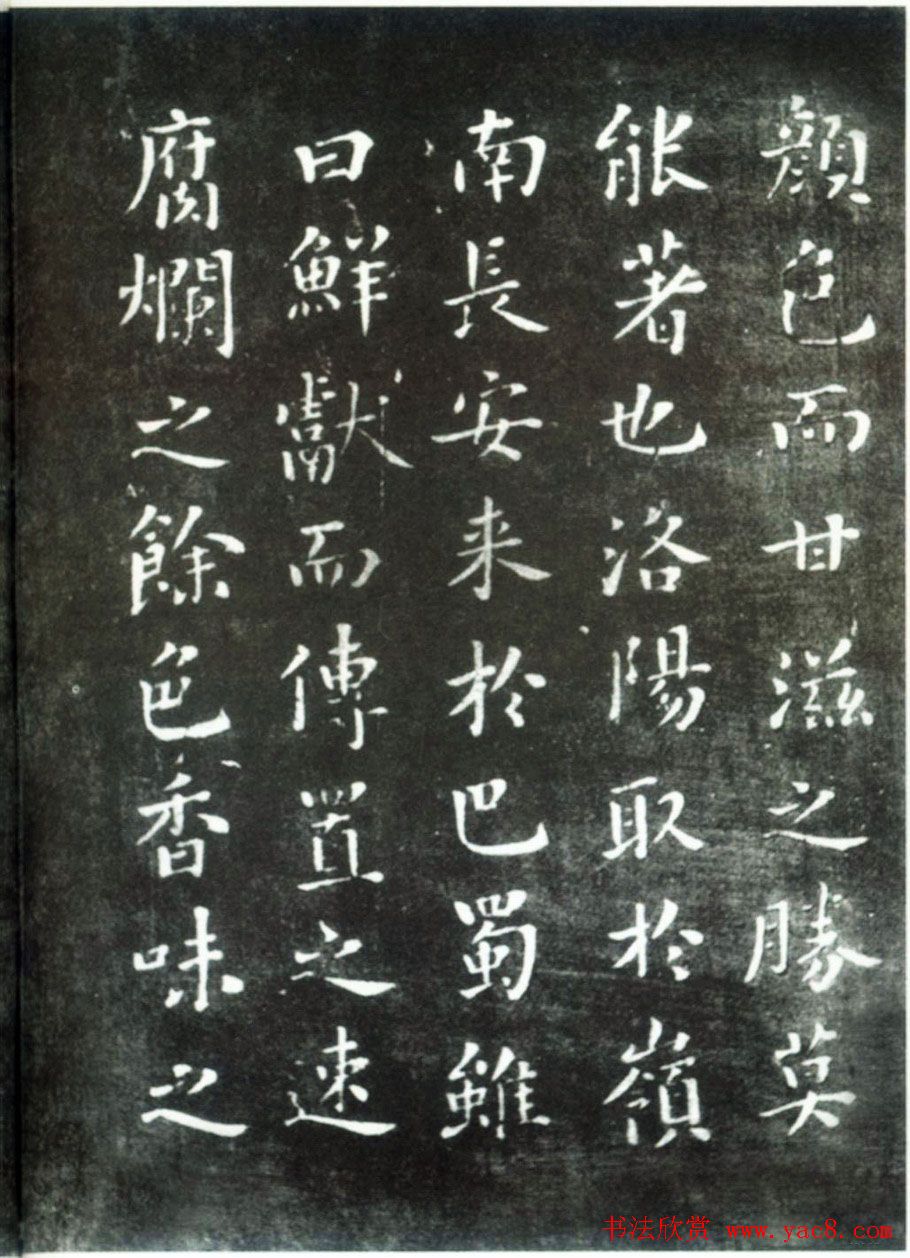 顔色而甘滋之勝莫
能著也洛陽取於嶺
南長安来於巴蜀雖
曰鮮獻而傳置之速
腐爛之餘色香味之
书法欣赏 www.yac8.com